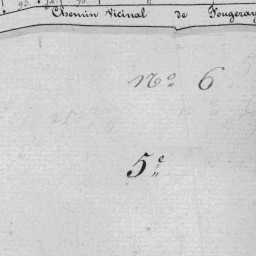 Chemin vicinal de Fougeray
n° 6
5e